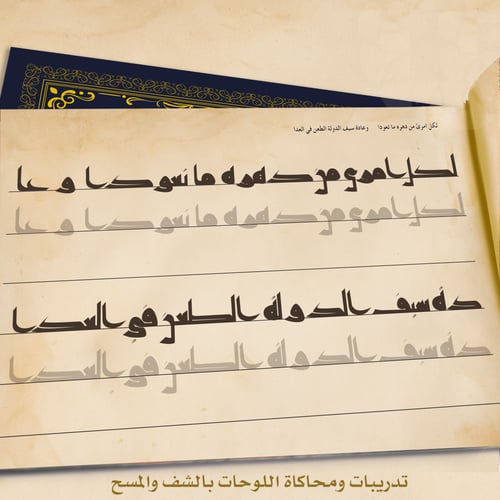 لكل امرئ من دهره ما تعودا وعادة سيف الدولة الطعن في العدا
لكل امرئ من دهره ما تعودا وعا
لكل امرئ من دهره ما تعودا وعا
دة سيف الدولة الطعن في العدا
دة سيف الدولة الطعن في العدا
تدريبات ومحاكاة اللوحات بالشف والمسح